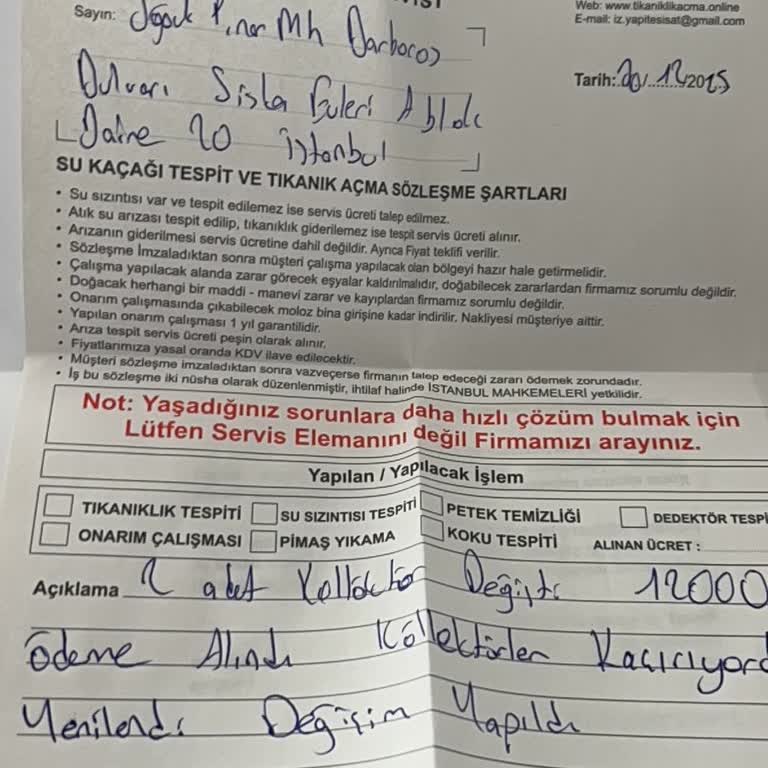 Web: www.tikaniklikacma.online
E-mail: iz.yapitesisat@gmail.com
Sayın: Pınar Mh Barbaros
Bulvarı Sisla Evleri A blok
Daire 20 İstanbul
Tarih: 20/12/2025
SU KAÇAĞI TESPİT VE TIKANIK AÇMA SÖZLEŞME ŞARTLARI
• Su sızıntısı var ve tespit edilemez ise servis ücreti talep edilmez.
• Atık su arızası tespit edilip, tıkanıklık giderilemez ise tespit servis ücreti alınır.
• Arızanın giderilmesi servis ücretine dahil değildir. Ayrıca Fiyat teklifi verilir.
• Sözleşme İmzaladıktan sonra müşteri çalışma yapılacak olan bölgeyi hazır hale getirmelidir.
• Çalışma yapılacak alanda zarar görecek eşyalar kaldırılmalıdır, doğabilecek zararlardan firmamız sorumlu değildir.
• Doğacak herhangi bir maddi - manevi zarar ve kayıplardan firmamız sorumlu değildir.
• Onarım çalışmasında çıkabilecek moloz bina girişine kadar indirilir. Nakliyesi müşteriye aittir.
• Yapılan onarım çalışması 1 yıl garantilidir.
• Arıza tespit servis ücreti peşin olarak alınır.
• Fiyatlarımıza yasal oranda KDV ilave edilecektir.
• Müşteri sözleşme imzaladıktan sonra vazveçerse firmanın talep edeceği zararı ödemek zorundadır.
• İş bu sözleşme iki nüsha olarak düzenlenmiştir, ihtilaf halinde İSTANBUL MAHKEMELERİ yetkilidir.
Not: Yaşadığınız sorunlara daha hızlı çözüm bulmak için
Lütfen Servis Elemanını değil Firmamızı arayınız.
Yapılan / Yapılacak İşlem
TIKANIKLIK TESPİTİ SU SIZINTISI TESPİTİ PETEK TEMİZLİĞİ DEDEKTÖR TESPİ
ONARIM ÇALIŞMASI PİMAŞ YIKAMA KOKU TESPİTİ ALINAN ÜCRET :
Açıklama 2 adet Kollektör Değişti 12000
Ödeme Alındı Kollektörler Kaçırıyord
Yenilendi Değişim Yapıldı